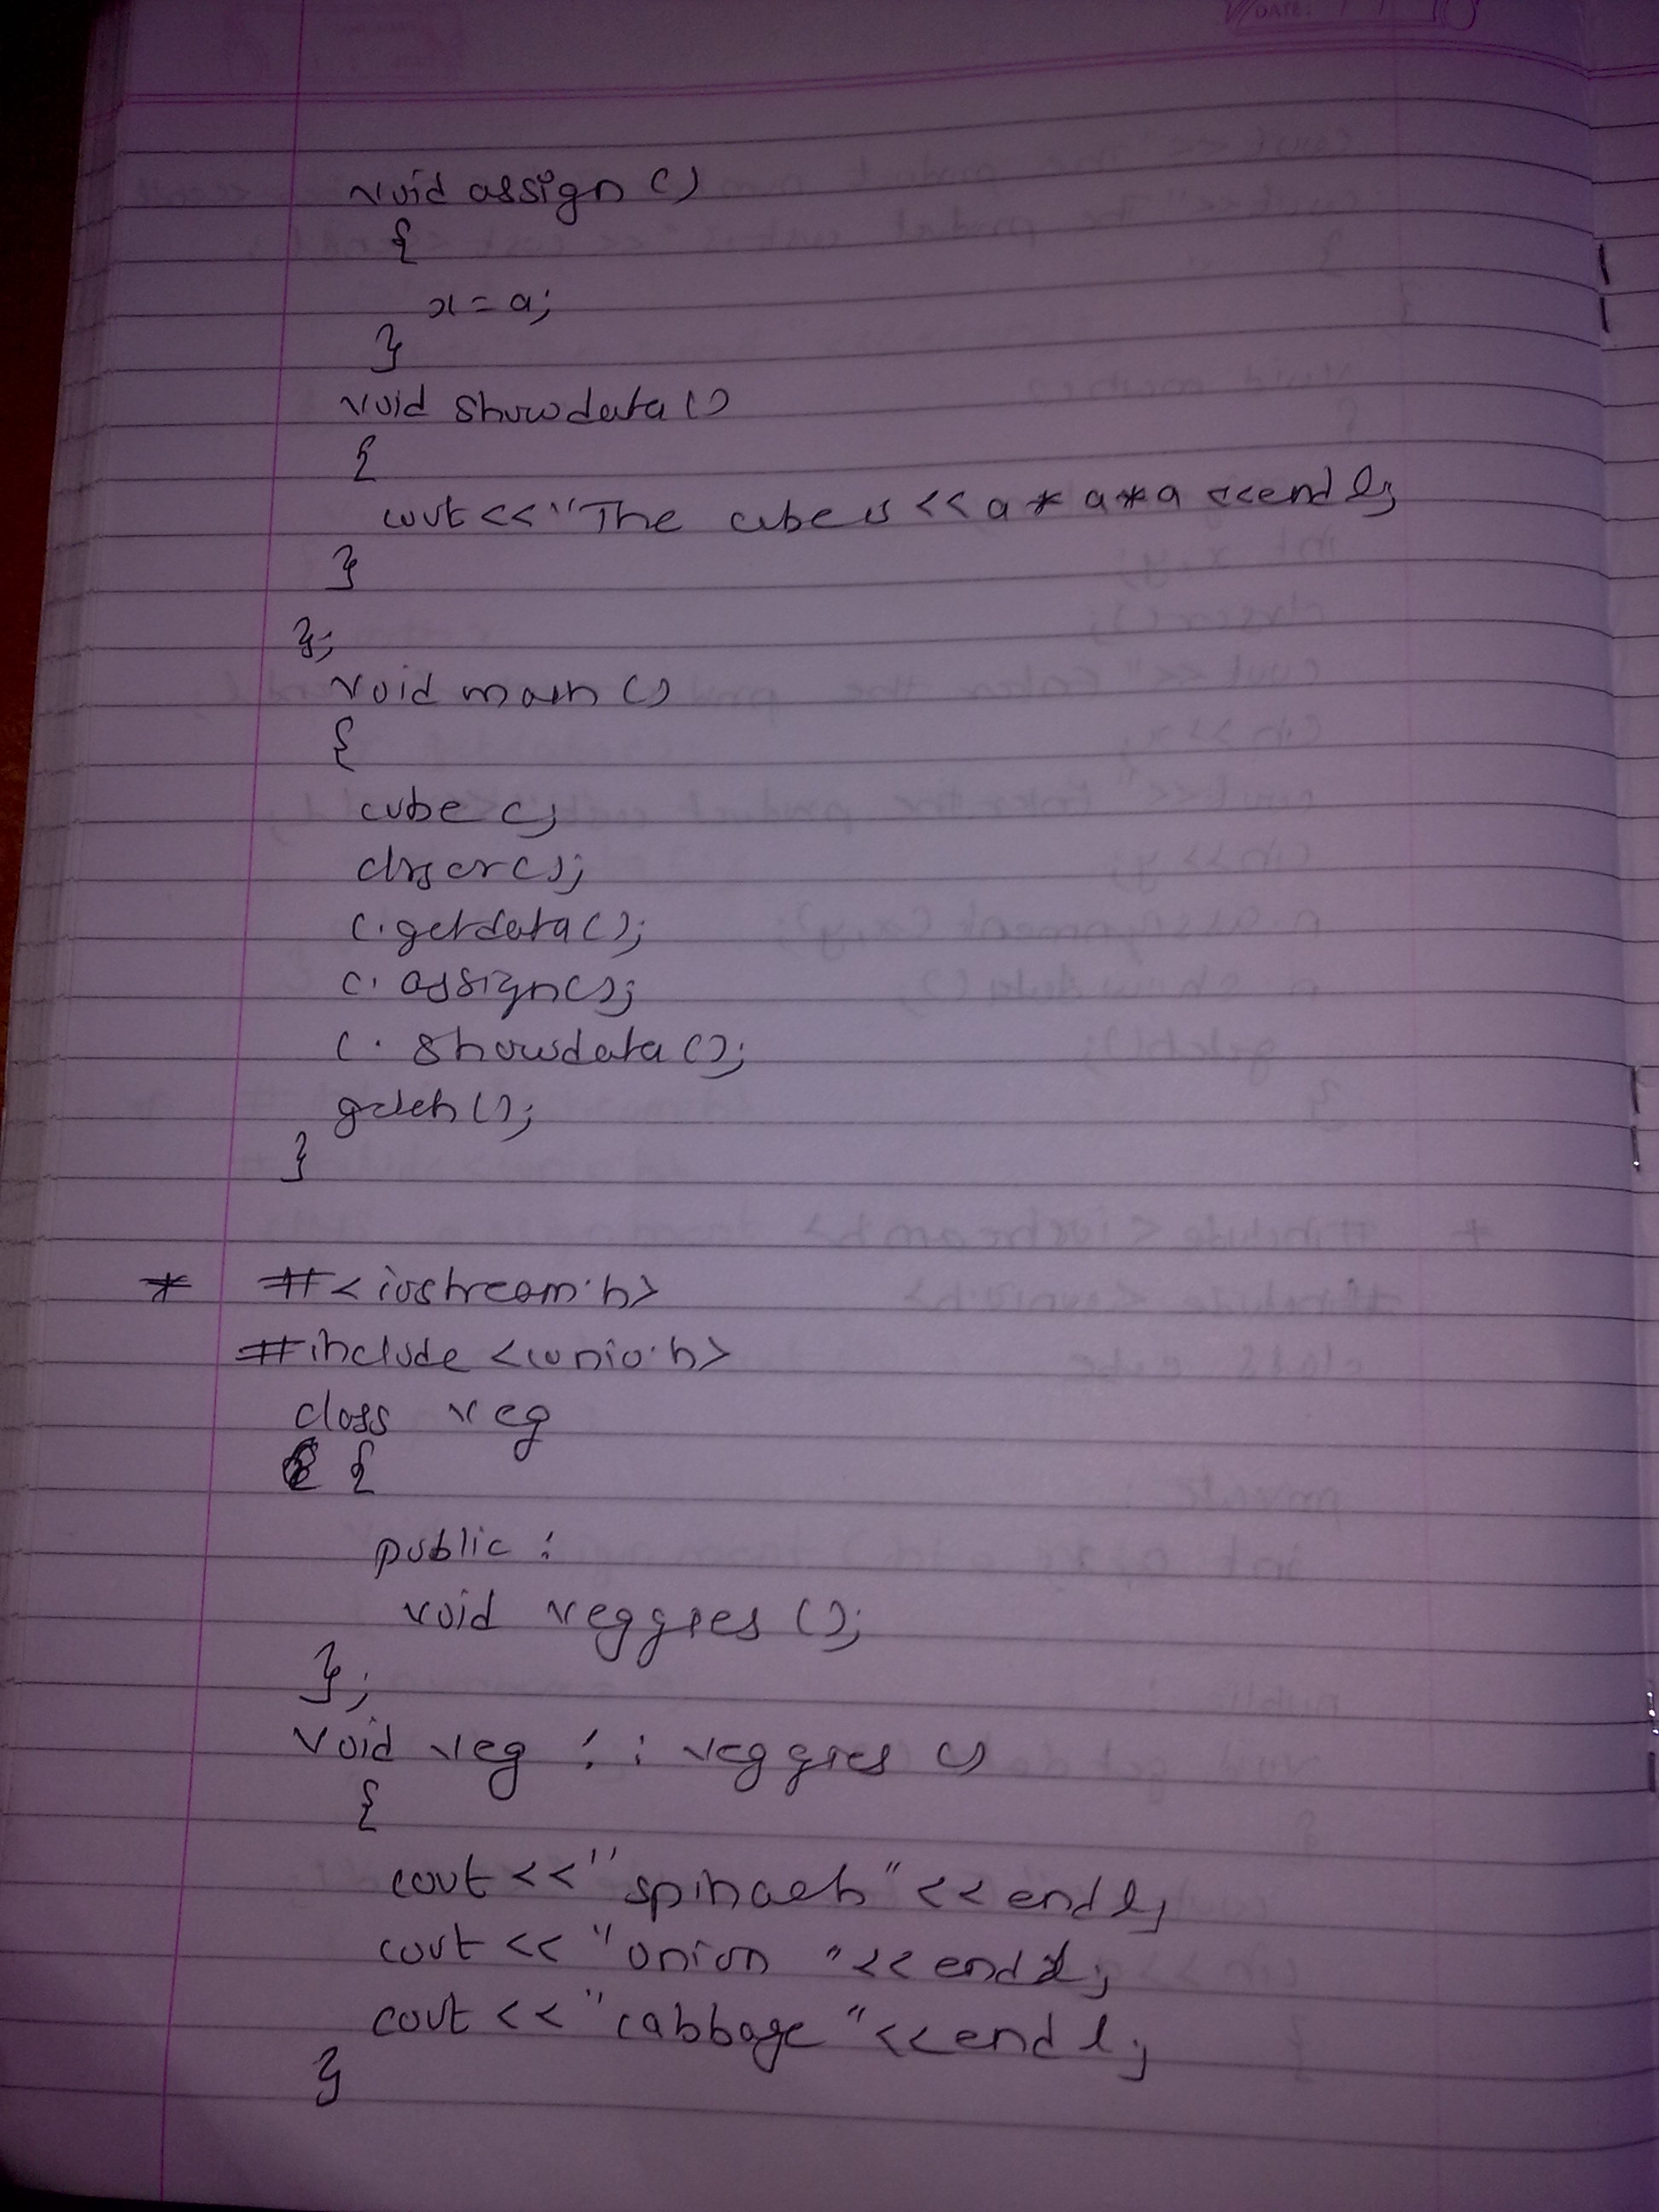 DATE:
void assign ()
{
x = a;
}
void showdata ()
{
cout << "The cube is << a * a * a << endl;
}
};
void main ()
{
cube c;
clrscr();
c. getdata ();
c. assign();
c. showdata ();
getch ();
}
* # <iostream.h>
#include <conio.h>
class veg
{
public :
void veggies ();
};
void veg : : veggies ()
{
cout << "spinach" << endl;
cout << "onion " << endl;
cout << "cabbage " << endl;
}